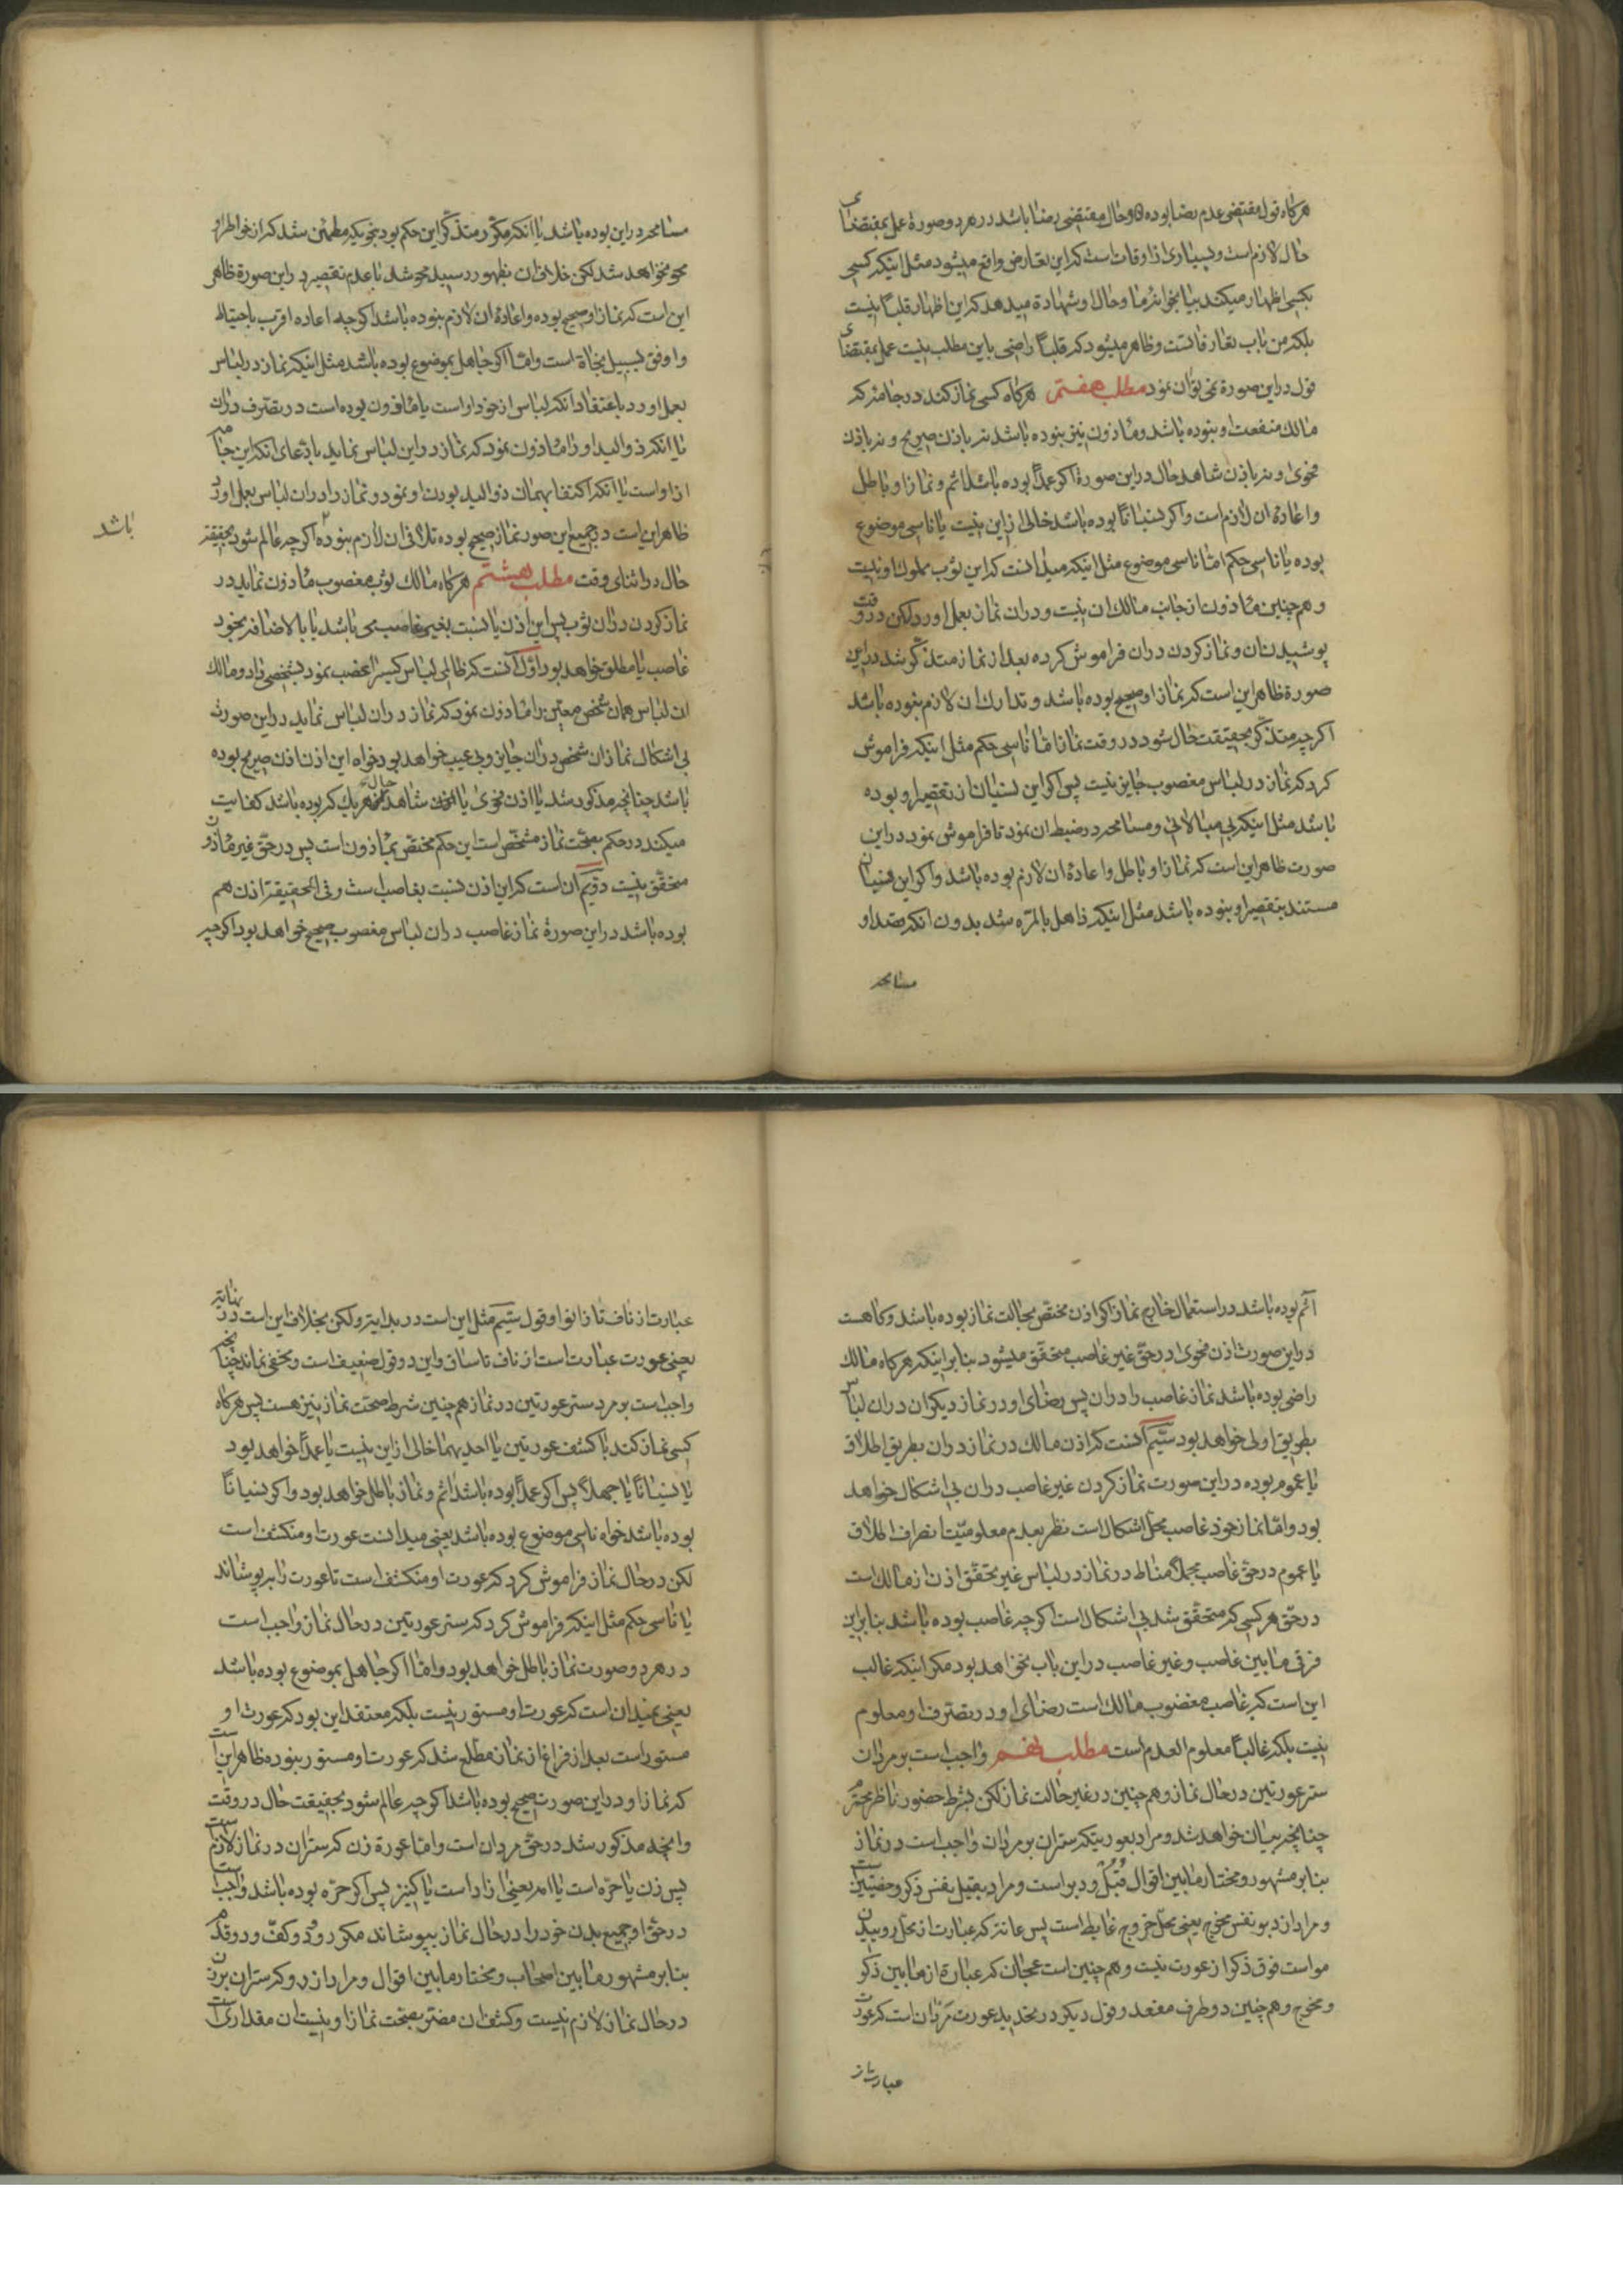 هرکاه قول مقتضی عدم رضا بوده و حال مقتضی رضا باشد در هر دو صورة عمل بمقتضای
حال لازم است و بسیاری از اوقات است که این تعارض واقع میشود مثل اینکه کسی
بکسی اظهار میکند بیا بخوانه ما و حال او شهادة میدهد که این اظهار قلبًا نیست
بلکه من باب تعارفاتست و ظاهر میشود که قلبًا راضی باین مطلب نیست عمل بمقتضای
قول در این صورة نمی توان نمود مطلب هفتم هرکاه کسی نماز کند در جامه که
مالک منفعت او نبوده باشد و مأذون نیز نبوده باشد نه باذن صریح و نه باذن
فحوی و نه باذن شاهد حال در این صورة اکر عمدًا بوده باشد اثم و نماز او باطل
و اعادهٔ ان لازم است و اکر نسیانًا بوده باشد خالی از این نیست یا ناسی موضوع
بوده یا ناسی حکم امّا ناسی موضوع مثل اینکه میدانست که این ثوب مملوک او نیست
و هم چنین مأذون از جانب مالک ان نیست و در ان نماز بعمل اورد لکن در وقت
پوشیدن ان و نماز کردن در ان فراموش کرده بعد از نماز متذکّر شد در این
صورة ظاهر این است که نماز او صحیح بوده باشد و تدارک ان لازم نبوده باشد
اکرچه متذکّر بحقیقت حال شود در وقت نماز امّا ناسی حکم مثل اینکه فراموش
کرد که نماز در لباس مغصوب جایز نیست پس اکر این نسیان از تقصیر او بوده
باشد مثل اینکه بی مبالاتی و مسامحه در ضبط ان نمود تا فراموش نمود در این
صورت ظاهر این است که نماز او باطل و اعادهٔ ان لازم بوده باشد و اکر این نسیان
مستند بتقصیر او نبوده باشد مثل اینکه ذاهل بالمرّه شد بدون انکه تعمد او
مسامحه
مسامحه در این بوده باشد یا انکه مکرّر متذکّر این حکم بود بنحویکه مطمئن شد که از خواطر او
محو نخواهد شد لکن خلاف ان بظهور رسید محو شد با عدم تقصیر در این صورة ظاهر
این است که نماز او صحیح بوده و اعادهٔ ان لازم نبوده باشد اکرچه اعاده اقرب باحتیاط
و اوفق بسبیل نجاة است و امّا اکر جاهل بموضوع بوده باشد مثل اینکه نماز در لباس
بعمل اورد باعتقاد انکه لباس از خود او است یا مأذون بوده است در تصرف در ان
یا انکه ذو الید او را مأذون نمود که نماز در این لباس نماید بادّعای انکه این جامه
از او است یا انکه اکتفا بهمان ذو الید بودن او نمود و نماز را در ان لباس بعمل اورد
ظاهر این است در جمیع این صور نماز صحیح بوده تلافی ان لازم نبوده اکرچه عالم شود بحقیقة
باشد
حال در اثنای وقت مطلب هشتم هرکاه مالک ثوب مغصوب مأذون نماید در
نماز کردن در ان ثوب پس این اذن یا نسبت بغیر غاصب می باشد یا بالاضافه بخود
غاصب یا مطلق خواهد بود اوّل انست که ظالمی لباس کسی را غصب نمود بشخصی داد و مالک
ان لباس همان شخص معیّن را مأذون نمود که نماز در ان لباس نماید در این صورت
بی اشکال نماز ان شخص در ان جایز و بی عیب خواهد بود خواه این اذن اذن صریح بوده
باشد چنانچه مذکور شد یا اذن فحوی یا شاهد حال هر یک که بوده باشد کفایت
میکند در حکم بصحّت نماز مشخّص است این حکم مختصّ بمأذون است پس در حقّ غیر مأذون
متحقّق نیست دوّیم آن است که این اذن نسبت بغاصب است و فی الحقیقة اذن هم
بوده باشد در این صورة نماز غاصب در ان لباس مغصوب صحیح خواهد بود اکرچه
آثم بوده باشد در استعمال خارج نماز اکر اذن مختصّ بحالت نماز بوده باشد و کاهست
در این صورت اذن فحوی در حقّ غیر غاصب متحقّق میشود بنا بر اینکه هرکاه مالک
راضی بوده باشد نماز غاصب را در ان پس رضای او در نماز دیکران در ان لباس
بطریق اولی خواهد بود سیّیم آنست که اذن مالک در نماز در ان بطریق اطلاق
یا عموم بوده در این صورت نماز کردن غیر غاصب در ان بی اشکال خواهد
بود و امّا نماز خود غاصب محلّ اشکال است نظر بعدم معلومیّت انصراف اطلاق
یا عموم در حقّ غاصب مجملًا مناط در نماز در لباس غیر تحقّق اذن از مالک است
در حقّ هر کسی که متحقّق شد بی اشکال است اکرچه غاصب بوده باشد بنا براین
فرقی ما بین غاصب و غیر غاصب در این باب نخواهد بود مکر اینکه غالب
این است که غاصب مغضوب مالک است رضای او در تصرف او معلوم
نیست بلکه غالبًا معلوم العدم است مطلب نهم واجب است بر مردان
ستر عورتین در حال نماز و هم چنین در غیر حالت نماز لکن بشرط حضور ناظر محترم
چنانچه بیان خواهد شد و مراد بعورتیکه ستر ان بر مردان واجب است در نماز
بنا بر مشهور و مختار ما بین اقوال قبل و دبر است و مراد بقبل نفس ذکر و خصیتین است
و مراد از دبر نفس مخرج یعنی محلّ خروج غایط است پس عانه که عبارت از محلّ روییدن
مو است فوق ذکر از عورت نیست و هم چنین است عجان که عبارة از ما بین ذکر
و مخرج و هم چنین دو طرف مقعد و قول دیکر در تحدید عورت مردان است که عورت
عبارت از
عبارت از ناف تا زانو او قول سیّیم مثل این است در بدایة ولکن بخلاف این است در نهایة
یعنی عورت عبارت است از ناف تا ساق و این دو قول ضعیف است و مخفی نماند چنانچه
واجب است بر مرد ستر عورتین در نماز هم چنین شرط صحّت نماز نیز هست پس هرکاه
کسی نماز کند با کشف عورتین یا احدیهما خالی از این نیست یا عمدًا خواهد بود
یا نسیانًا یا جهلًا پس اکر عمدًا بوده باشد اثم و نماز باطل خواهد بود و اکر نسیانًا
بوده باشد خواه ناسی موضوع بوده باشد یعنی میدانست عورت او منکشف است
لکن در حال نماز فراموش کرد که عورت او منکشف است تا عورت را بپوشاند
یا ناسی حکم مثل اینکه فراموش کرد که ستر عورتین در حال نماز واجب است
در هر دو صورت نماز باطل خواهد بود و امّا اکر جاهل بموضوع بوده باشد
یعنی نمیدانست که عورت او مستور نیست بلکه معتقد این بود که عورت او
مستور است بعد از فراغ از نماز مطّلع شد که عورت او مستور نبوده ظاهر این است
که نماز او در این صورت صحیح بوده باشد اکرچه عالم شود بحقیقت حال در وقت
و انچه مذکور شد در حقّ مردان است و امّا عورة زن که ستر ان در نماز لازم است
پس زن یا حرّه است یا امه یعنی ازاد است یا کنیز پس اکر حرّه بوده باشد واجب است
در حقّ او جمیع بدن خود را در حال نماز بپوشاند مکر رو و دو کفّ و دو قدم
بنا بر مشهور ما بین اصحاب و مختار ما بین اقوال و مراد از رو که ستر ان بر زن
در حال نماز لازم نیست و کشف ان مضرّ بصحّت نماز او نیست ان مقداری است